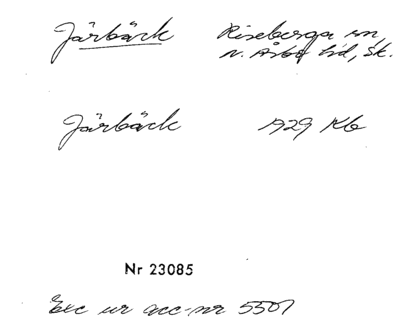 Järbäck Riseberga sn,
N. Åsbo hd, Sk.
Järbäck 1929 Kb
Nr 23085
Exc ur acc-nr 5507